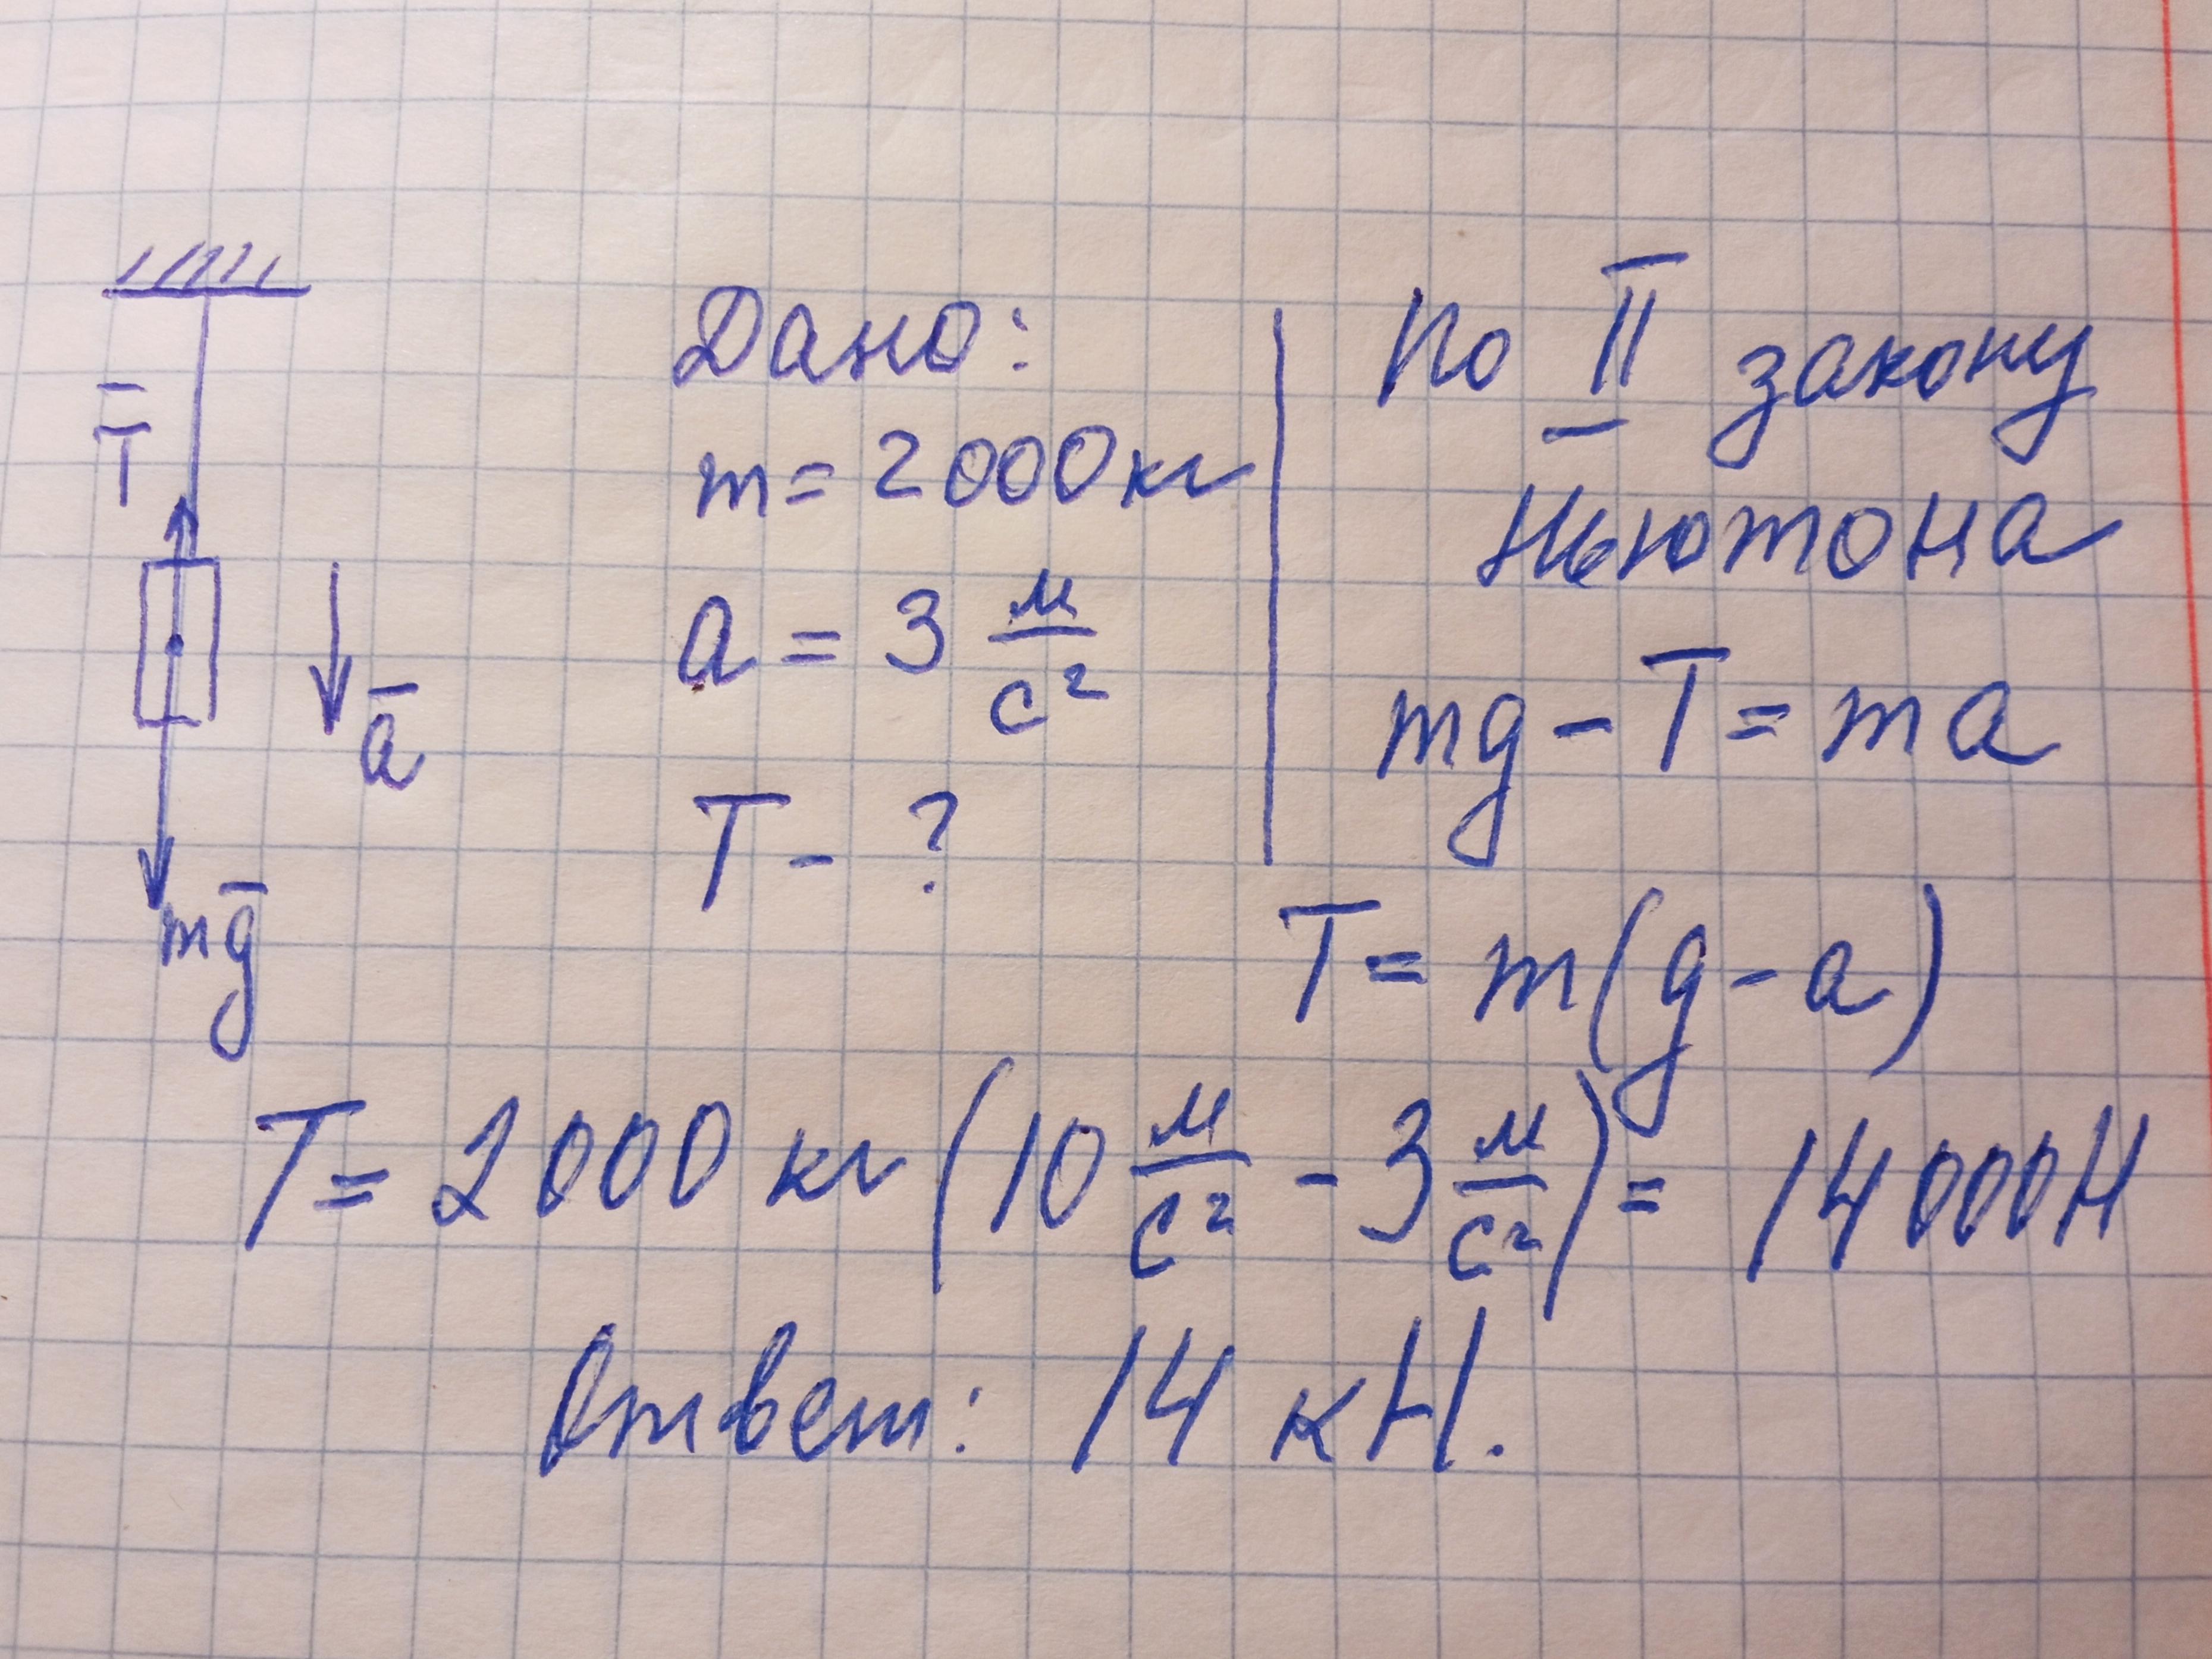 T̄
ā
mḡ
Дано:
m = 2000 кг
a = 3 м/с²
T - ?
По II закону
Ньютона
mg - T = ma
T = m(g - a)
T = 2000 кг (10 м/с² - 3 м/с²) = 14000 Н
Ответ: 14 кН.